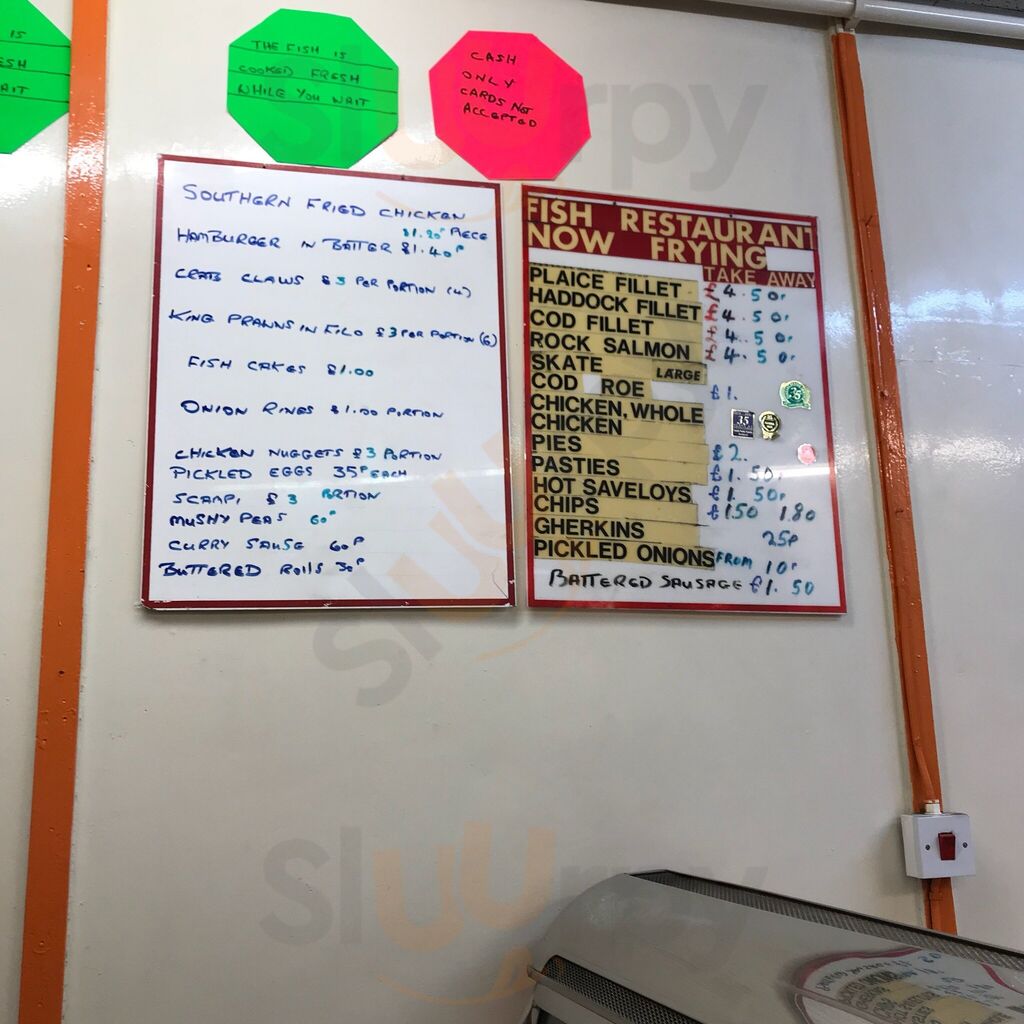 IS
ESH
AIT
THE FISH IS
COOKED FRESH
WHILE YOU WAIT
CASH
ONLY
CARDS NOT
ACCEPTED
SOUTHERN FRIED CHICKEN
£1.20P PIECE
HAMBURGER IN BATTER £1.40P
CRAB CLAWS £3 PER PORTION (4)
KING PRAWNS IN FILO £3 PER PORTION (6)
FISH CAKES £1.00
ONION RINGS £1.00 PORTION
CHICKEN NUGGETS £3 PORTION
PICKLED EGGS 35P EACH
SCAMPI £3 PORTION
MUSHY PEAS 60P
CURRY SAUSE 60P
BUTTERED ROLLS 30P
FISH RESTAURANT
NOW FRYING
TAKE AWAY
PLAICE FILLET £4.50P
HADDOCK FILLET £4.50P
COD FILLET £4.50P
ROCK SALMON £4.50P
SKATE LARGE
COD ROE £1.
CHICKEN, WHOLE
CHICKEN
PIES £2.
PASTIES £1.50P
HOT SAVELOYS £1.50P
CHIPS £1.50 1.80
GHERKINS 25P
PICKLED ONIONS FROM 10P
BATTERED SAUSAGE £1.50
Sluurpy
Sluurpy
Sluurpy